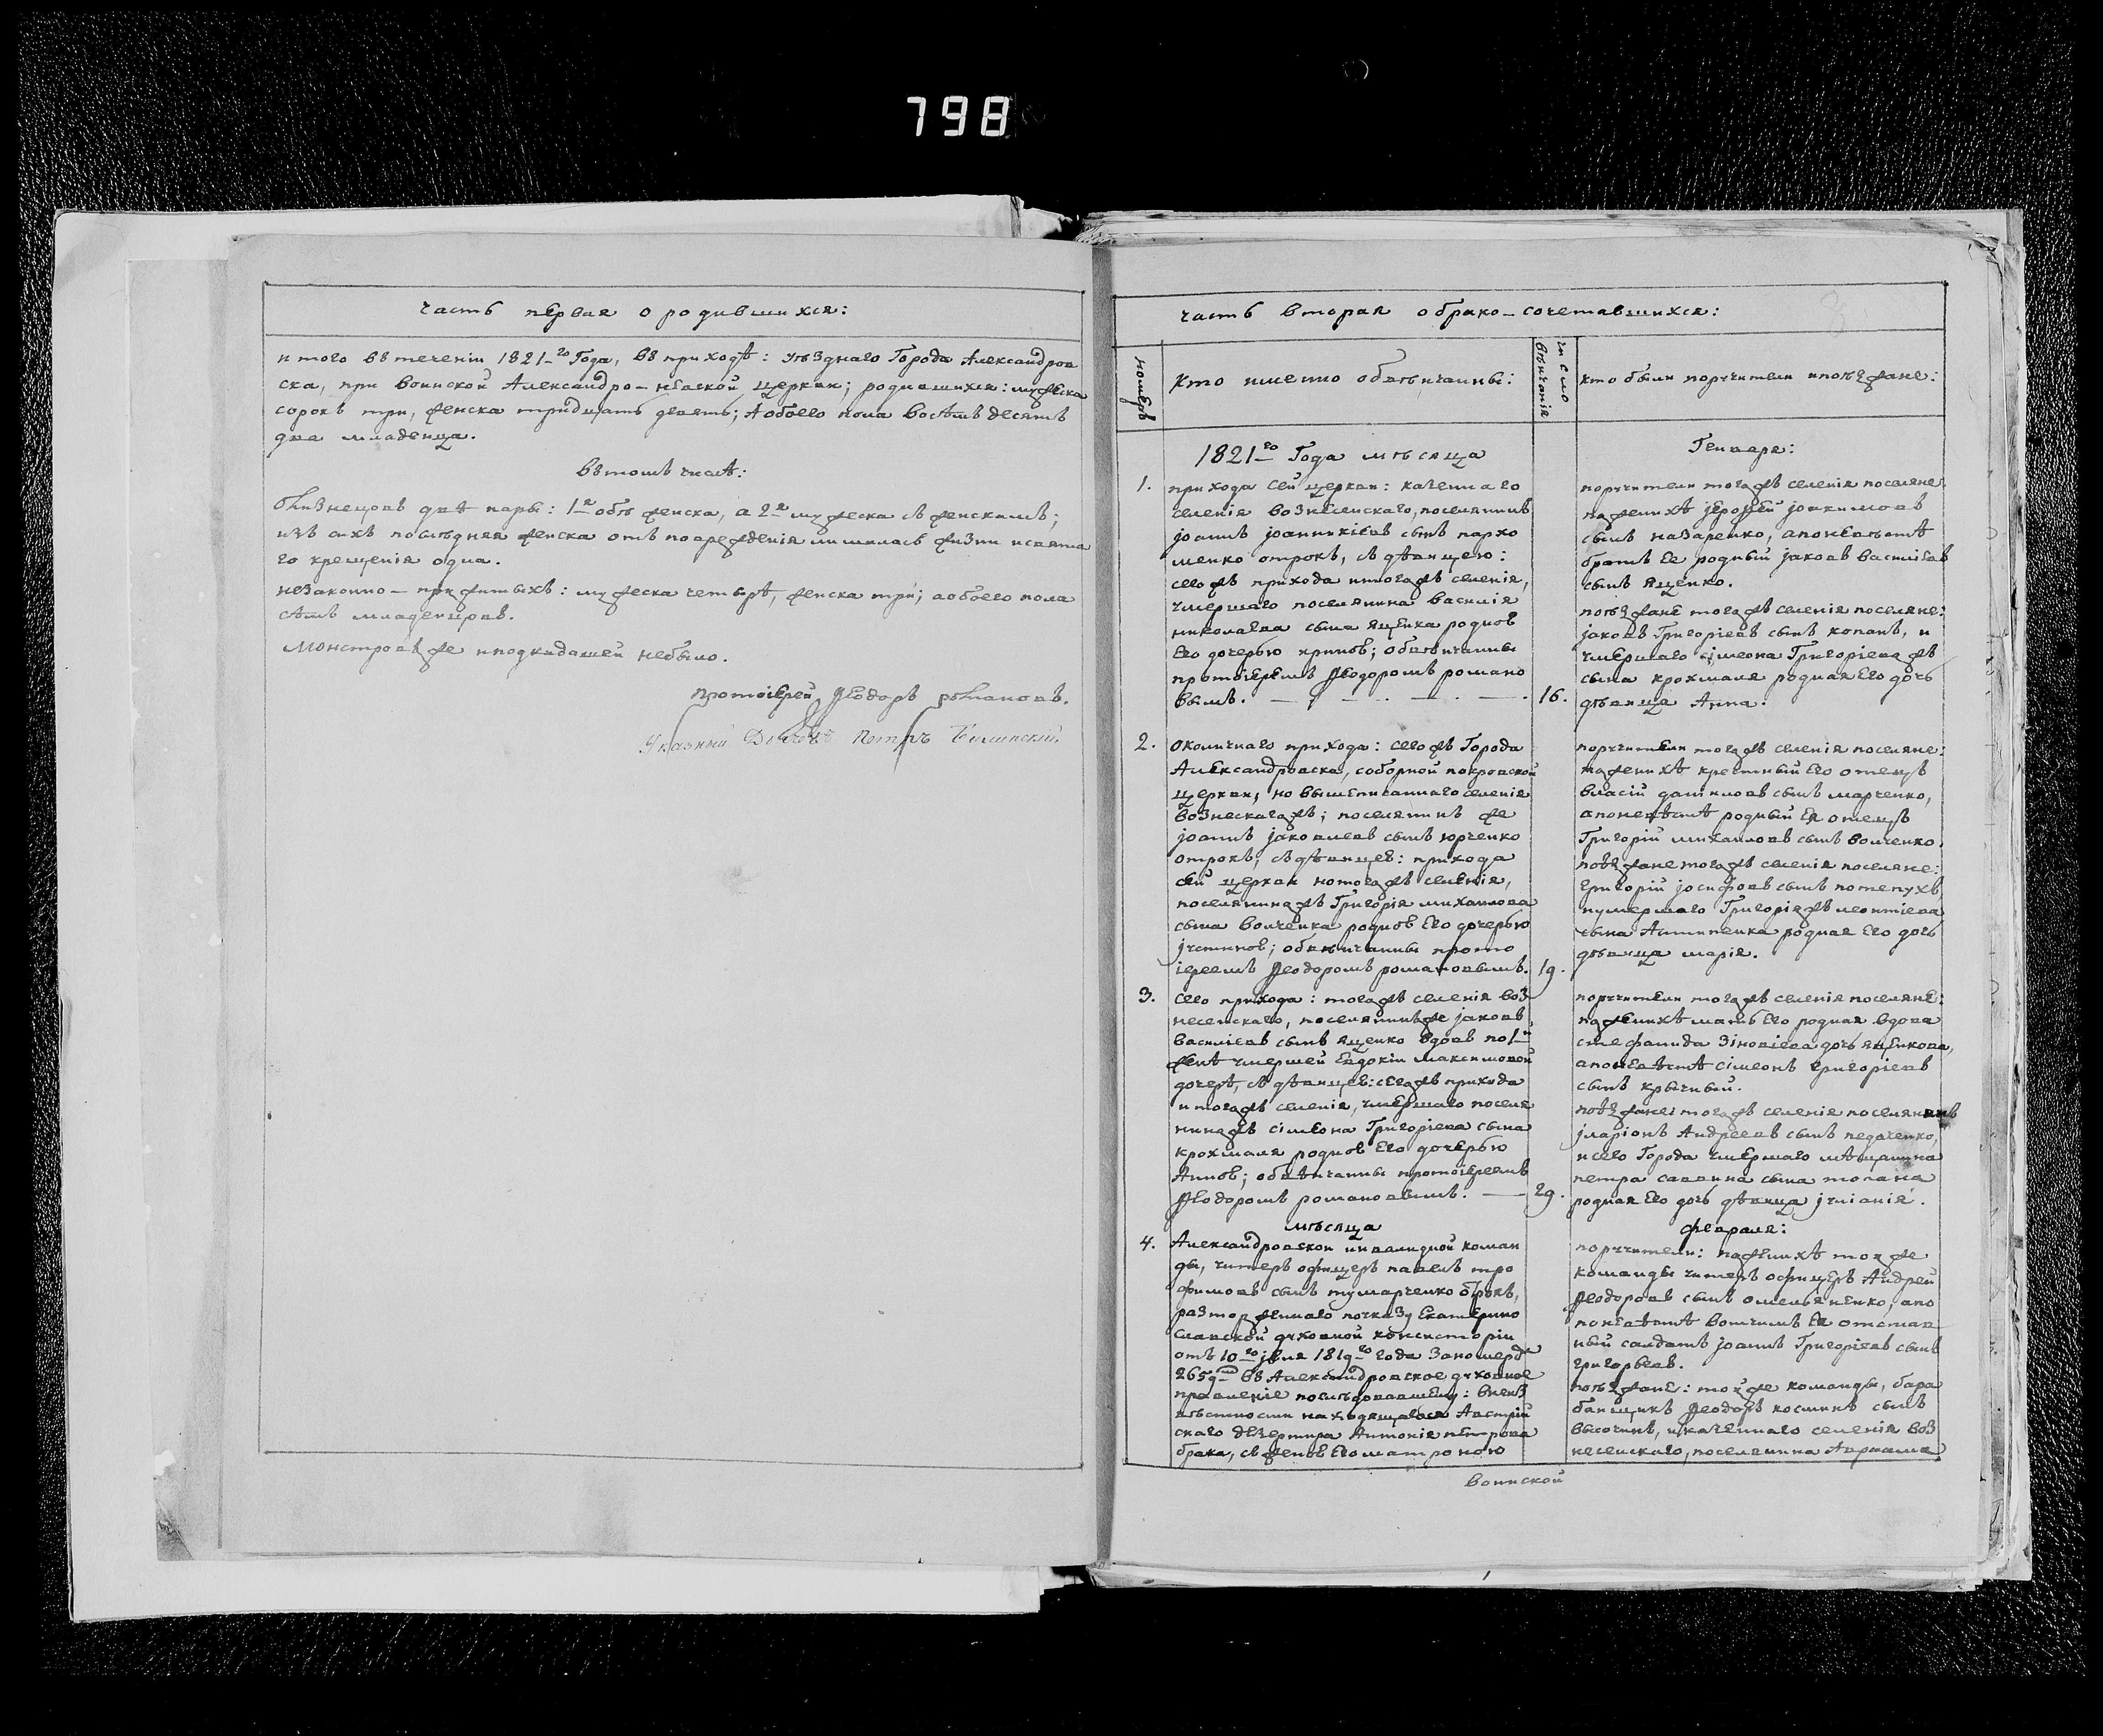 798
часть первая о родившихся:
итого въ теченіи 1821-го Года, въ приходѣ: уѣзднаго Города Александров
ска, при воинской Александро-невской церкви; родившихся: мужеска
сорокъ три, женска тридцать девять; А обоего пола восемъ десятъ
два младенца.
Въ томъ числѣ:
близнецовъ двѣ пары: 1я обѣ женска, а 2я мужеска съ женскимъ;
изъ сихъ послѣдняя женска отъ поврежденія лишилась жизни и свята
го крещенія одна.
незаконно-прижитыхъ: мужеска четырѣ, женска три; а обоего пола
семъ младенцовъ.
Монстровъ же и подкидашей небыло.
протоіерей Ѳеодоръ романовъ.
Указный Дьячекъ Петръ
часть вторая о брако-сочетавшихся:
номеръ
кто именно обвѣнчанны:
число
вѣнчанія
кто были поручители и поѣзжане:
1821го Года мѣсяца
Генваря:
1.
прихода сей церкви: казенна го
селенія вознесенскаго, поселянинъ
јоаннъ јоанникіевъ сынъ пархо
менко отрокъ, съ дѣвицею:
сего жъ прихода и тогожъ селенія,
умершаго поселянина василія
николаева сына яценка родною
Его дочерью ириною; обвѣнчанны
протоіереемъ Ѳеодоромъ романо
вымъ.
16.
поручители тогожъ селенія поселяне
пожених јероѳей јоакимовъ
сынъ назаренко, а поневѣстѣ
братъ Ее родный јаковъ василіевъ
сынъ яценко.
поѣзжане тогожъ селенія поселяне:
јаковъ Григоріевъ сынъ копанъ, и
умершаго сімеона Григоріева жъ
сына крохмаля родная Его дочь
дѣвица Анна.
2.
околичнаго прихода: сего жъ Города
Александровска, соборной покровской
церкви, но вышеписаннаго селенія
вознескагожъ; поселянинъ же
јоаннъ јаковлевъ сынъ юрченко
отрокъ, съ дѣвицею: прихода
сей церкви и тогожъ селенія,
поселянинажъ Григорія михаилова
сына волченка родною Его дочерью
јустиною; обвѣнчанны прото
іереемъ Ѳеодоромъ романовымъ.
19.
поручители тогожъ селенія поселяне:
пожених крестный Его отецъ
власій даниловъ сынъ марченко,
а поневѣстѣ родный Ея отецъ
Григорій михаиловъ сынъ волченко.
поѣзжане тогожъ селенія поселяне:
григорій јосифовъ сынъ потепухъ,
и умершаго Григоріяжъ леонтіева
сына Антипенка родная Его дочь
дѣвица марія.
3.
Сего прихода: тогожъ селенія воз
несенскаго, поселянинъже јаковъ
василіевъ сынъ яценко вдовъ по 1й
женѣ умершей Евдокіи Максимовой
дочерѣ, съ дѣвицею: сегожъ прихода
и тогожъ селенія, умершаго поселя
нинажъ сімеона Григоріева сына
крохмаля родною Его дочерью
Анною; обвѣнчанны протоіереемъ
Ѳеодоромъ романовымъ.
29.
поручители тогожъ селенія поселяне:
пожених мать Его родная вдова
стефанида зіновіева дочь яценкова,
а поневѣстѣ сімеонъ григоріевъ
сынъ
поѣзжане: тогожъ селенія поселянинъ
јларіонъ Андреевъ сынъ
и сего Города умершаго мѣщанина
петра саввина сына
родная Его дочь дѣвица јуліанія.
мѣсяца
февраля:
4.
Александровской инвалидной коман
ды, унтеръ офицеръ павелъ тро
фимовъ сынъ тумарченко отрокъ,
разторженнаго по указу Екатерино
славской духовной консисторіи
отъ 10го јуля 1819го года за номеромъ
2659мъ въ Александровское духовное
правленіе послѣдовавшему: внеиз
вѣстности находящагося Австрій
скаго дезертира Антонія петрова
брака, съ женою Его матроною
поручители: пожених той же
команды унтеръ офицеръ Андрей
Ѳеодоровъ сынъ омельяненко, а по
невѣстѣ вотчимъ Ея отстав
ный салдатъ јоаннъ Григоріевъ сынъ
григорьевъ.
поѣзжане: той же команды, бара
банщикъ Ѳеодоръ косминъ сынъ
высочинъ, и казеннаго селенія воз
несенскаго, поселянина Авраама
воинской